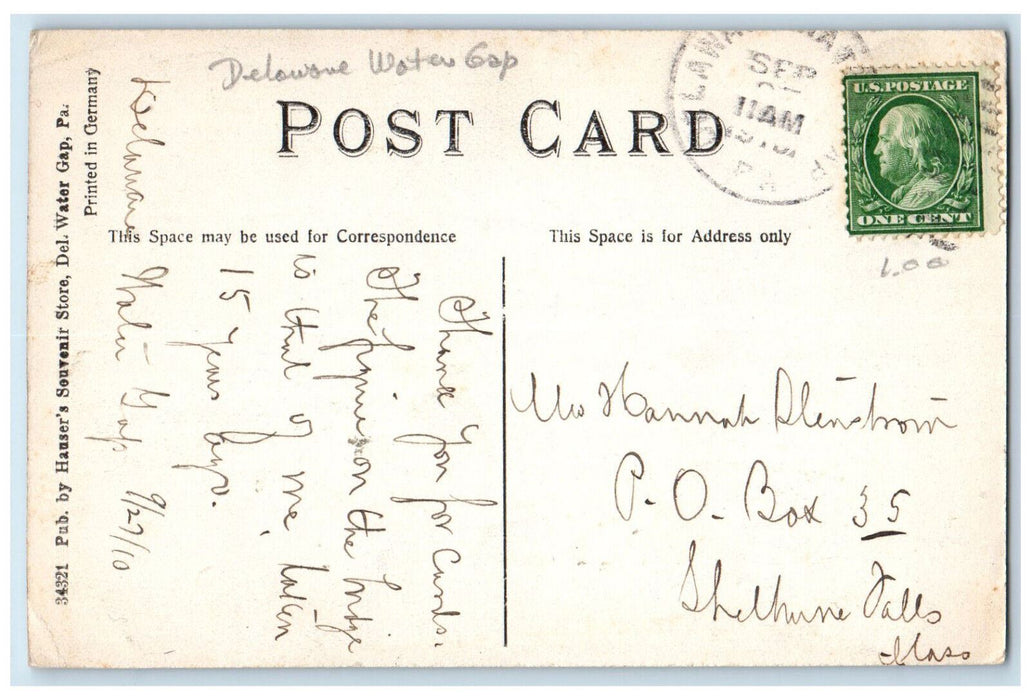 Delaware Water Gap
POST CARD
SEP
11 AM
PA
U.S. POSTAGE
ONE CENT
1.00
This Space may be used for Correspondence
This Space is for Address only
34321 Pub. by Hauser's Souvenir Store, Del. Water Gap, Pa.
Printed in Germany
Delaware Water Gap 9/27/10
Thank you for Cards.
The figure on the bridge
is that of me, taken
15 years ago.
Hannah
P. O. Box 35
Shelburne Falls
Mass